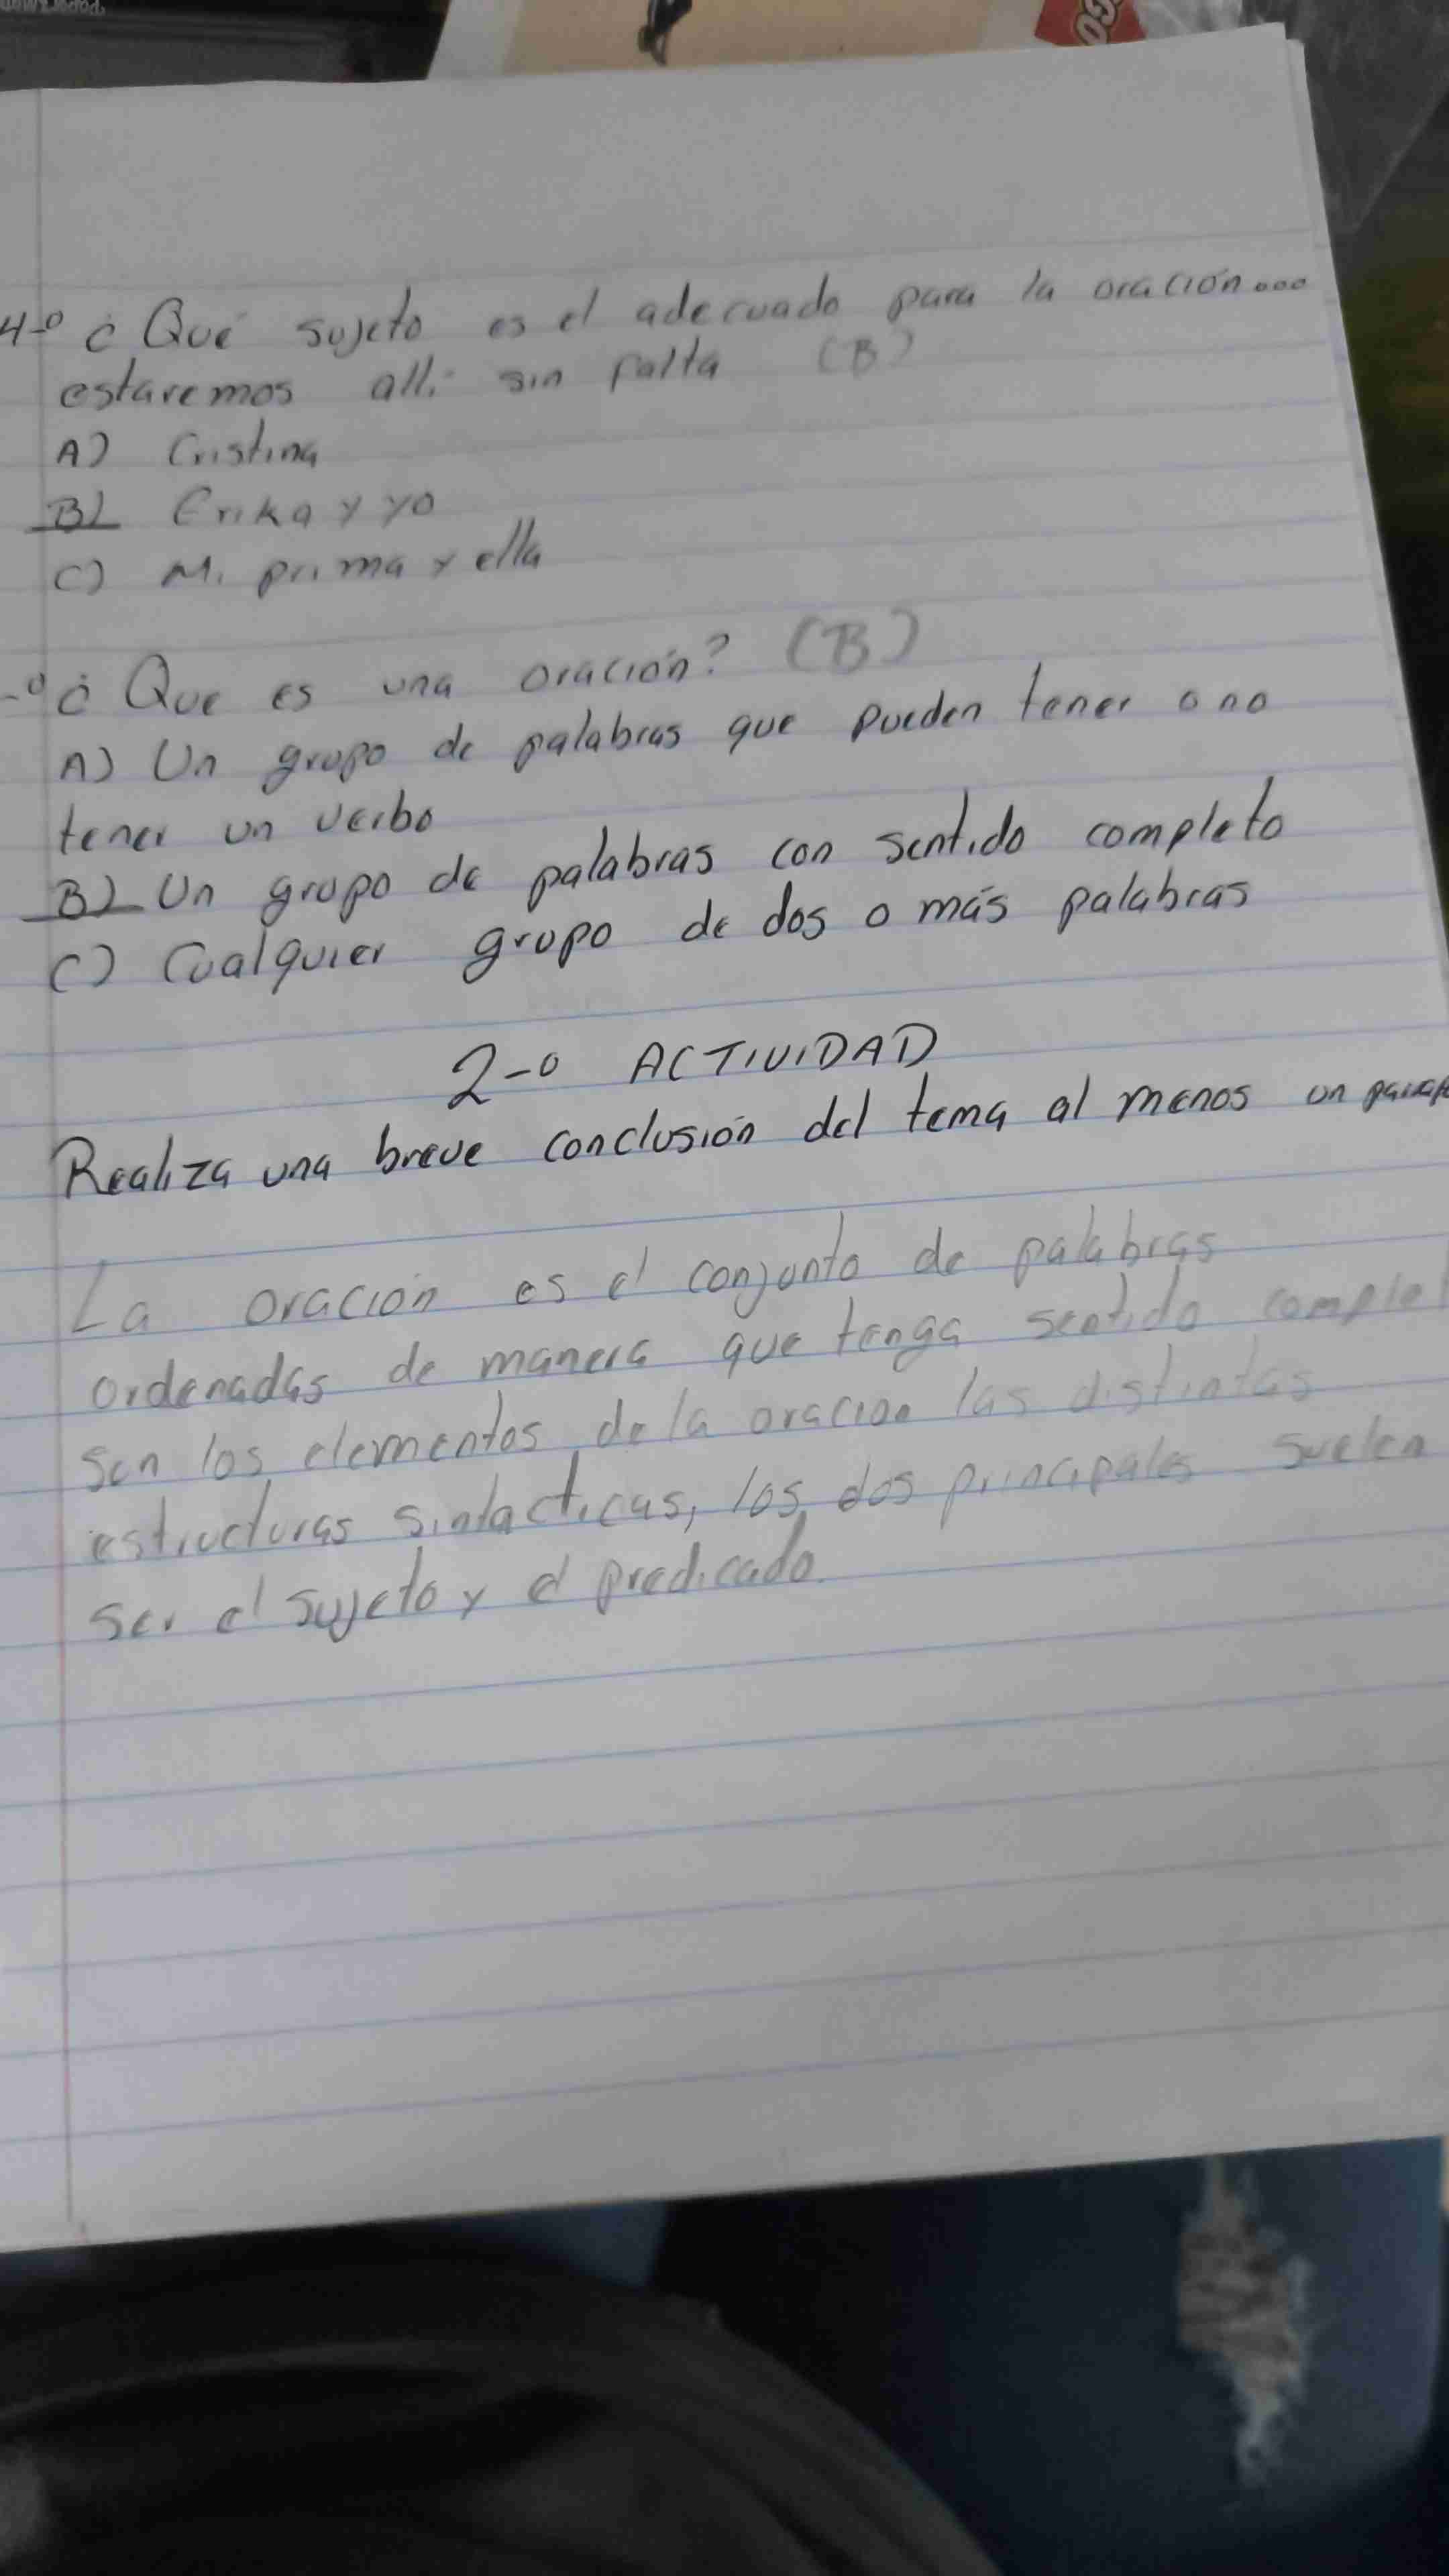 4-º ¿Qué sujeto es el adecuado para la oración...
estaremos allí sin falta (B)
A) Cristina
B) Erika y yo
C) Mi prima y ella
-º ¿Que es una oración? (B)
A) Un grupo de palabras que pueden tener o no
tener un verbo
B) Un grupo de palabras con sentido completo
C) Cualquier grupo de dos o más palabras
2-º ACTIVIDAD
Realiza una breve conclusión del tema al menos un
La oración es el conjunto de palabras
ordenadas de manera que tenga sentido comple
son los elementos de la oracion las distintas
estructuras sintacticas, los dos principales suelen
ser el sujeto y el predicado.